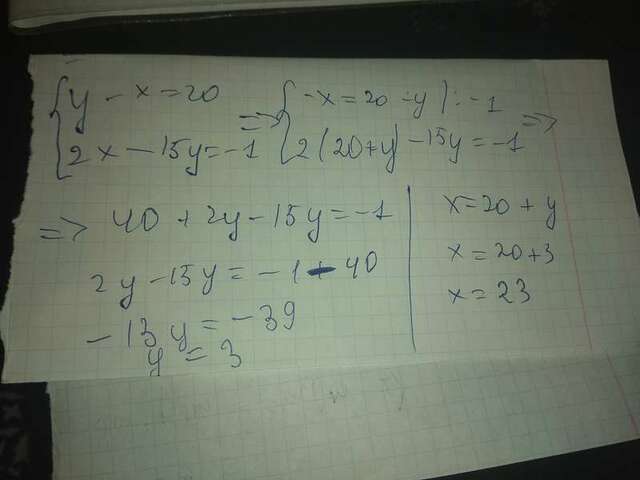 y - x = 20
2x - 15y = -1
=>
-x = 20 - y | : -1
2(20+y) - 15y = -1
=>
=> 40 + 2y - 15y = -1
2y - 15y = -1 - 40
-13y = -39
y = 3
x = 20 + y
x = 20 + 3
x = 23